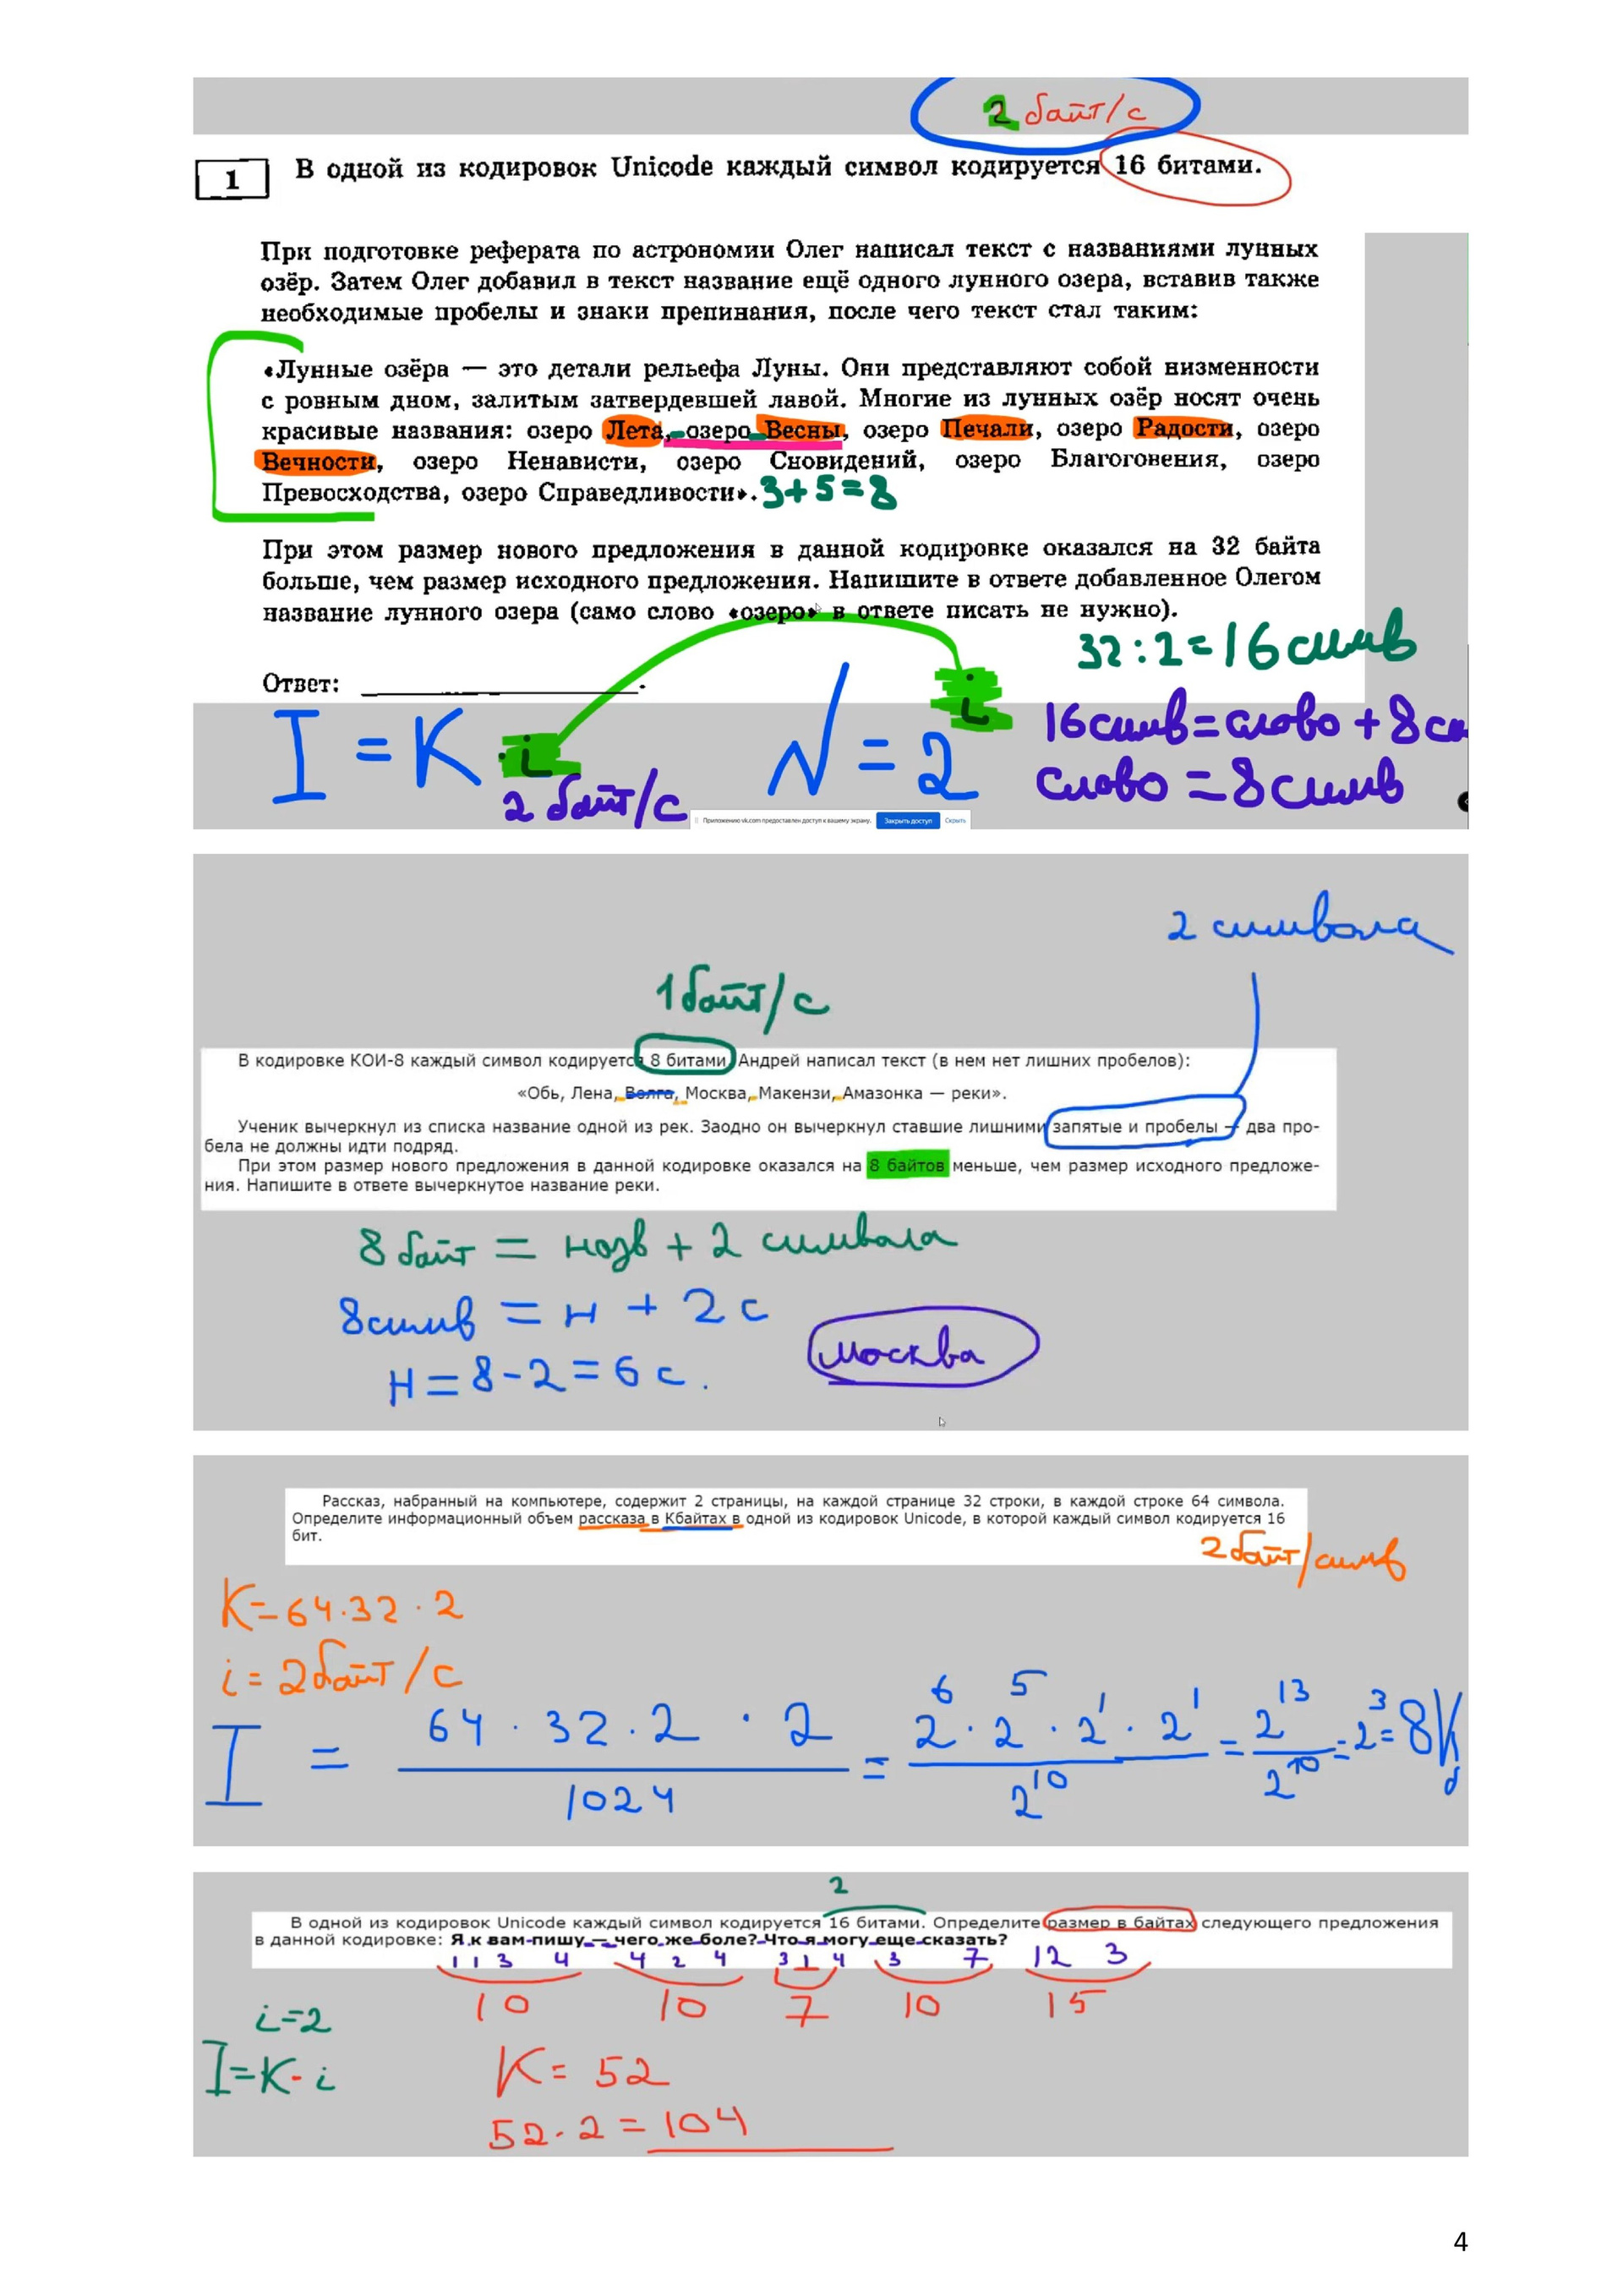 2 байт/с
1
В одной из кодировок Unicode каждый символ кодируется 16 битами.
При подготовке реферата по астрономии Олег написал текст с названиями лунных
озёр. Затем Олег добавил в текст название ещё одного лунного озера, вставив также
необходимые пробелы и знаки препинания, после чего текст стал таким:
«Лунные озёра — это детали рельефа Луны. Они представляют собой низменности
с ровным дном, залитым затвердевшей лавой. Многие из лунных озёр носят очень
красивые названия: озеро Лета, озеро Весны, озеро Печали, озеро Радости, озеро
Вечности, озеро Ненависти, озеро Сновидений, озеро Благоговения, озеро
Превосходства, озеро Справедливости».
3+5=8
При этом размер нового предложения в данной кодировке оказался на 32 байта
больше, чем размер исходного предложения. Напишите в ответе добавленное Олегом
название лунного озера (само слово «озеро» в ответе писать не нужно).
32:2=16симв
Ответ: ____________.
I = K · i
2 байт/с
N = 2^i
16симв=слово + 8си
слово = 8симв
Приложению vk.com предоставлен доступ к вашему экрану. Закрыть доступ Скрыть
2 символа
1байт/с
В кодировке КОИ-8 каждый символ кодируется 8 битами. Андрей написал текст (в нем нет лишних пробелов):
«Обь, Лена, Волга, Москва, Макензи, Амазонка — реки».
Ученик вычеркнул из списка название одной из рек. Заодно он вычеркнул ставшие лишними запятые и пробелы — два про-
бела не должны идти подряд.
При этом размер нового предложения в данной кодировке оказался на 8 байтов меньше, чем размер исходного предложе-
ния. Напишите в ответе вычеркнутое название реки.
8 байт = назв + 2 символа
8симв = н + 2 с
Н = 8 - 2 = 6 с.
москва
Рассказ, набранный на компьютере, содержит 2 страницы, на каждой странице 32 строки, в каждой строке 64 символа.
Определите информационный объем рассказа в Кбайтах в одной из кодировок Unicode, в которой каждый символ кодируется 16
бит.
2байт/симв
K=64·32·2
i = 2байт/с
I = 64 · 32 · 2 · 2 / 1024 = 2^6 · 2^5 · 2^1 · 2^1 / 2^10 = 2^13 / 2^10 = 2^3 = 8Кб
2
В одной из кодировок Unicode каждый символ кодируется 16 битами. Определите размер в байтах следующего предложения
в данной кодировке: Я к вам пишу — чего же боле? Что я могу еще сказать?
1 1 3 4 4 2 4 3 1 4 3 7 12 3
10 10 7 10 15
i=2
I=K·i
K= 52
52·2=104
4